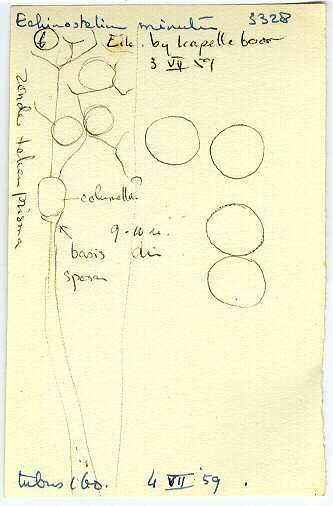 Echinostelium minutum 3328
6 Eik. by kapelleboom
3 VII 59
zonder tekenprisma
columella?
9-10 u.
basis
spore
tubus 160. 4 VII '59.